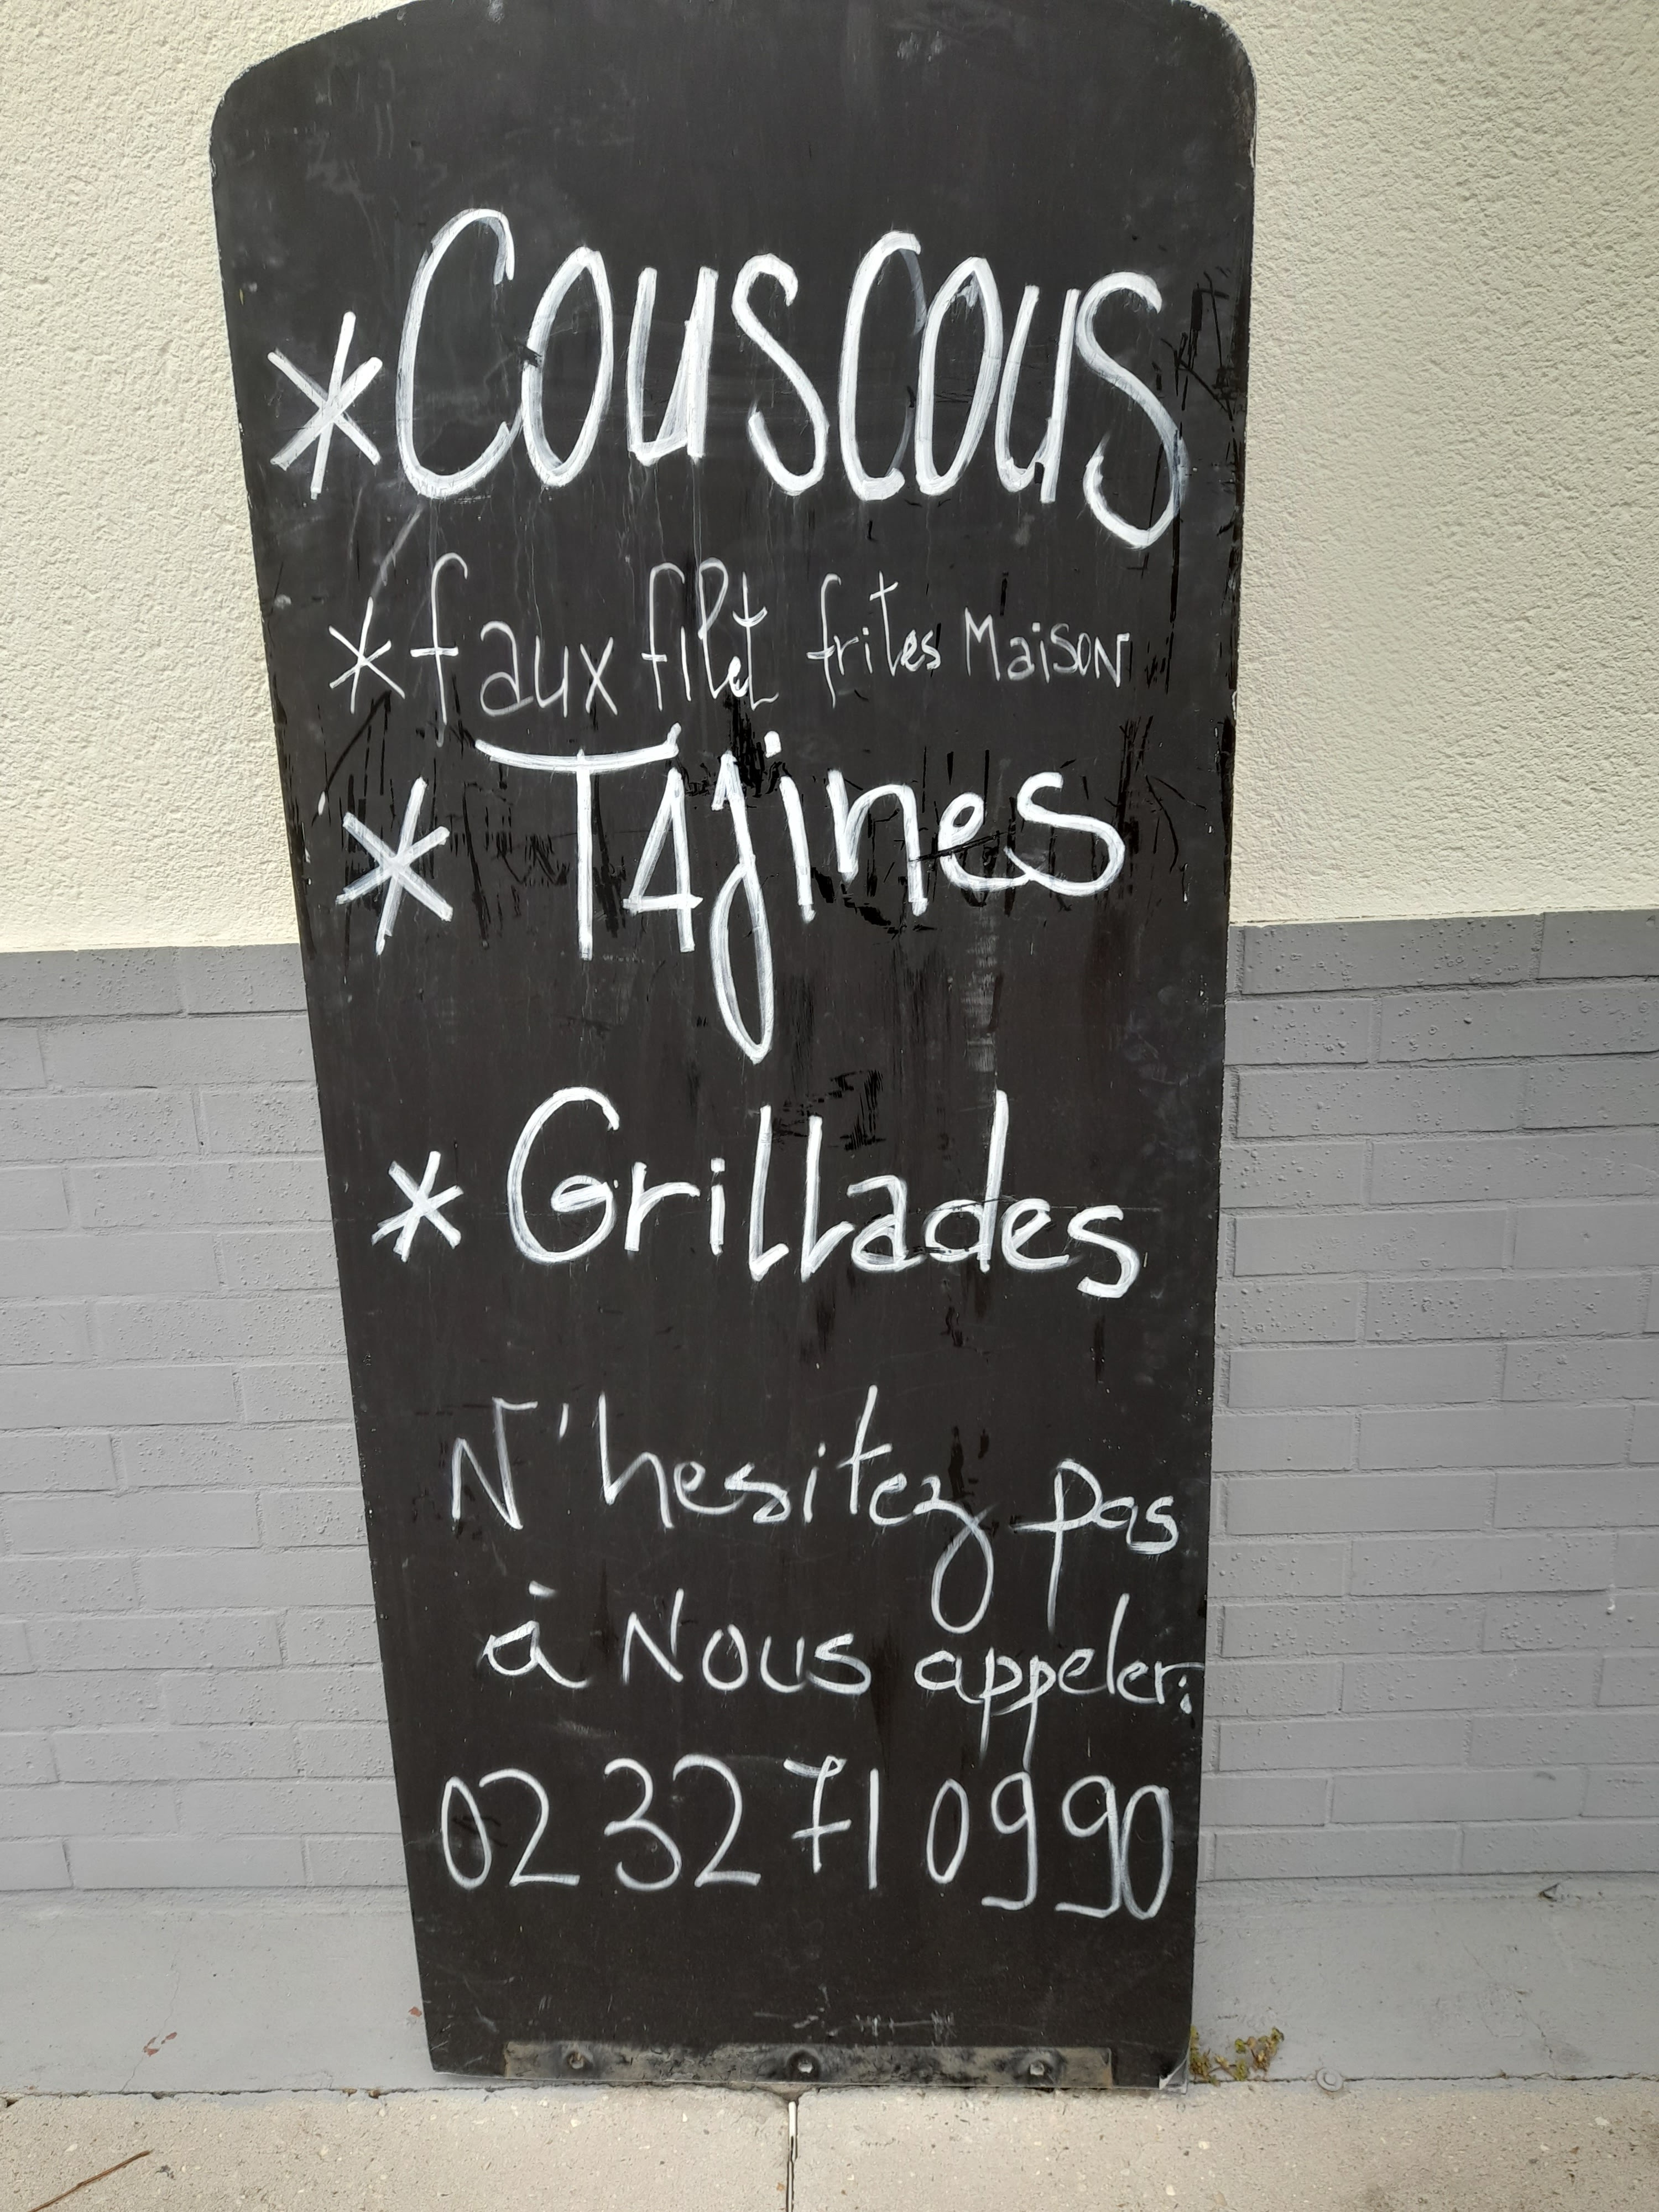 * Couscous
* faux filet frites Maison
* Tajines
* Grillades
N'hesitez pas
à Nous appeler:
02 32 71 09 90